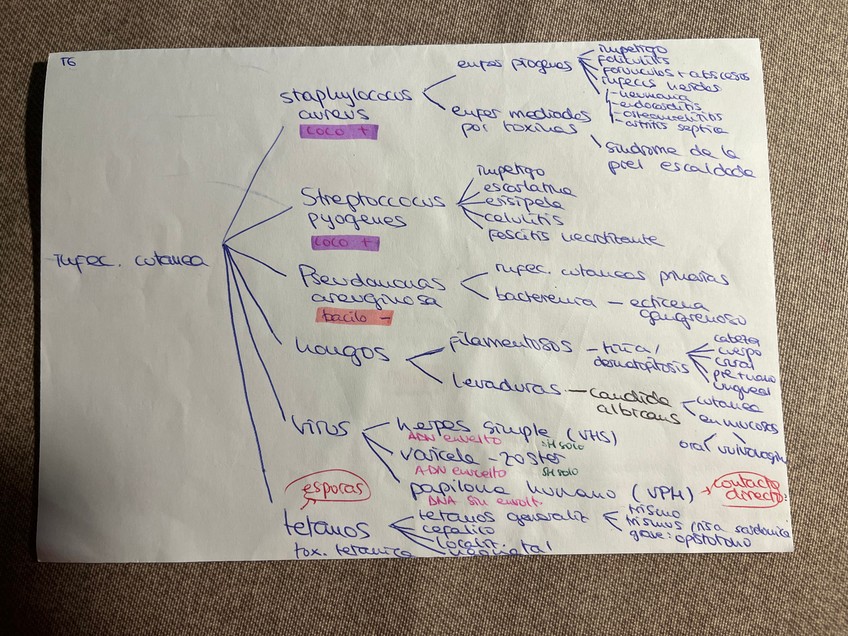 T6
infec. cutanea
staphylococus
aureus
coco +
enfer piogenas
impetigo
foliculitis
forunculos + abscesos
infeccis heridas
- neumonia
- endocarditis
- osteomielitis
- artritis septica
enfer mediadas
por toxinas
sindrome de la
piel escaldada
Streptoccocus
pyogenes
coco +
impetigo
escarlatina
erisipela
celulitis
fascitis necrotitante
Pseudomonas
areuginosa
bacilo -
infec. cutaneas primarias
bacteremia - ectiema
gangrenoso
hongos
filamentosos - tiña/
dermatofitosis
cabeza
cuerpo
crural
pie + mano
ungueal
levaduras - candida
albicans
cutanea
en mucosas
oral
vulvovagin
virus
herpes simple (VHS)
ADN envelto
SH solo
varicela - zoster
ADN envelto
SH solo
papiloma humano (VPH) → contacto
directo
DNA sin envolt.
esporas
tetanos
tox. tetanica
tetanos generaliz
cefalico
localiz.
neonatal
trismo
trismus / risa sardonica
grave: opistotono